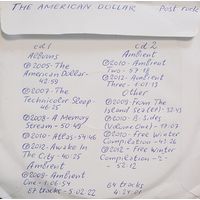 THE AMERICAN DOLLAR
Post rock
cd 1
Albums
℗2005-The
American Dollar-
42:53
℗2007-The
Technicolor Sleep
-46:25
℗2008-A Memory
Stream-50:45
℗2010-Atlas-54:46
℗2012-Awake In
The City-40:25
Ambient
℗2009-Ambient
One-1:06:54
67 tracks-5:02:22
cd 2
Ambient
℗2010-Ambient
Two-57:18
℗2012-Ambient
Three-1:01:13
Other
℗2009-From The
Island Sea (EP)-32:43
℗2010-B-Sides
(Volume One)
℗2010-Free Winter
Compilation-41:26
℗2012-Free Winter
Compilation-2-
52:12
64 tracks
4:24:01